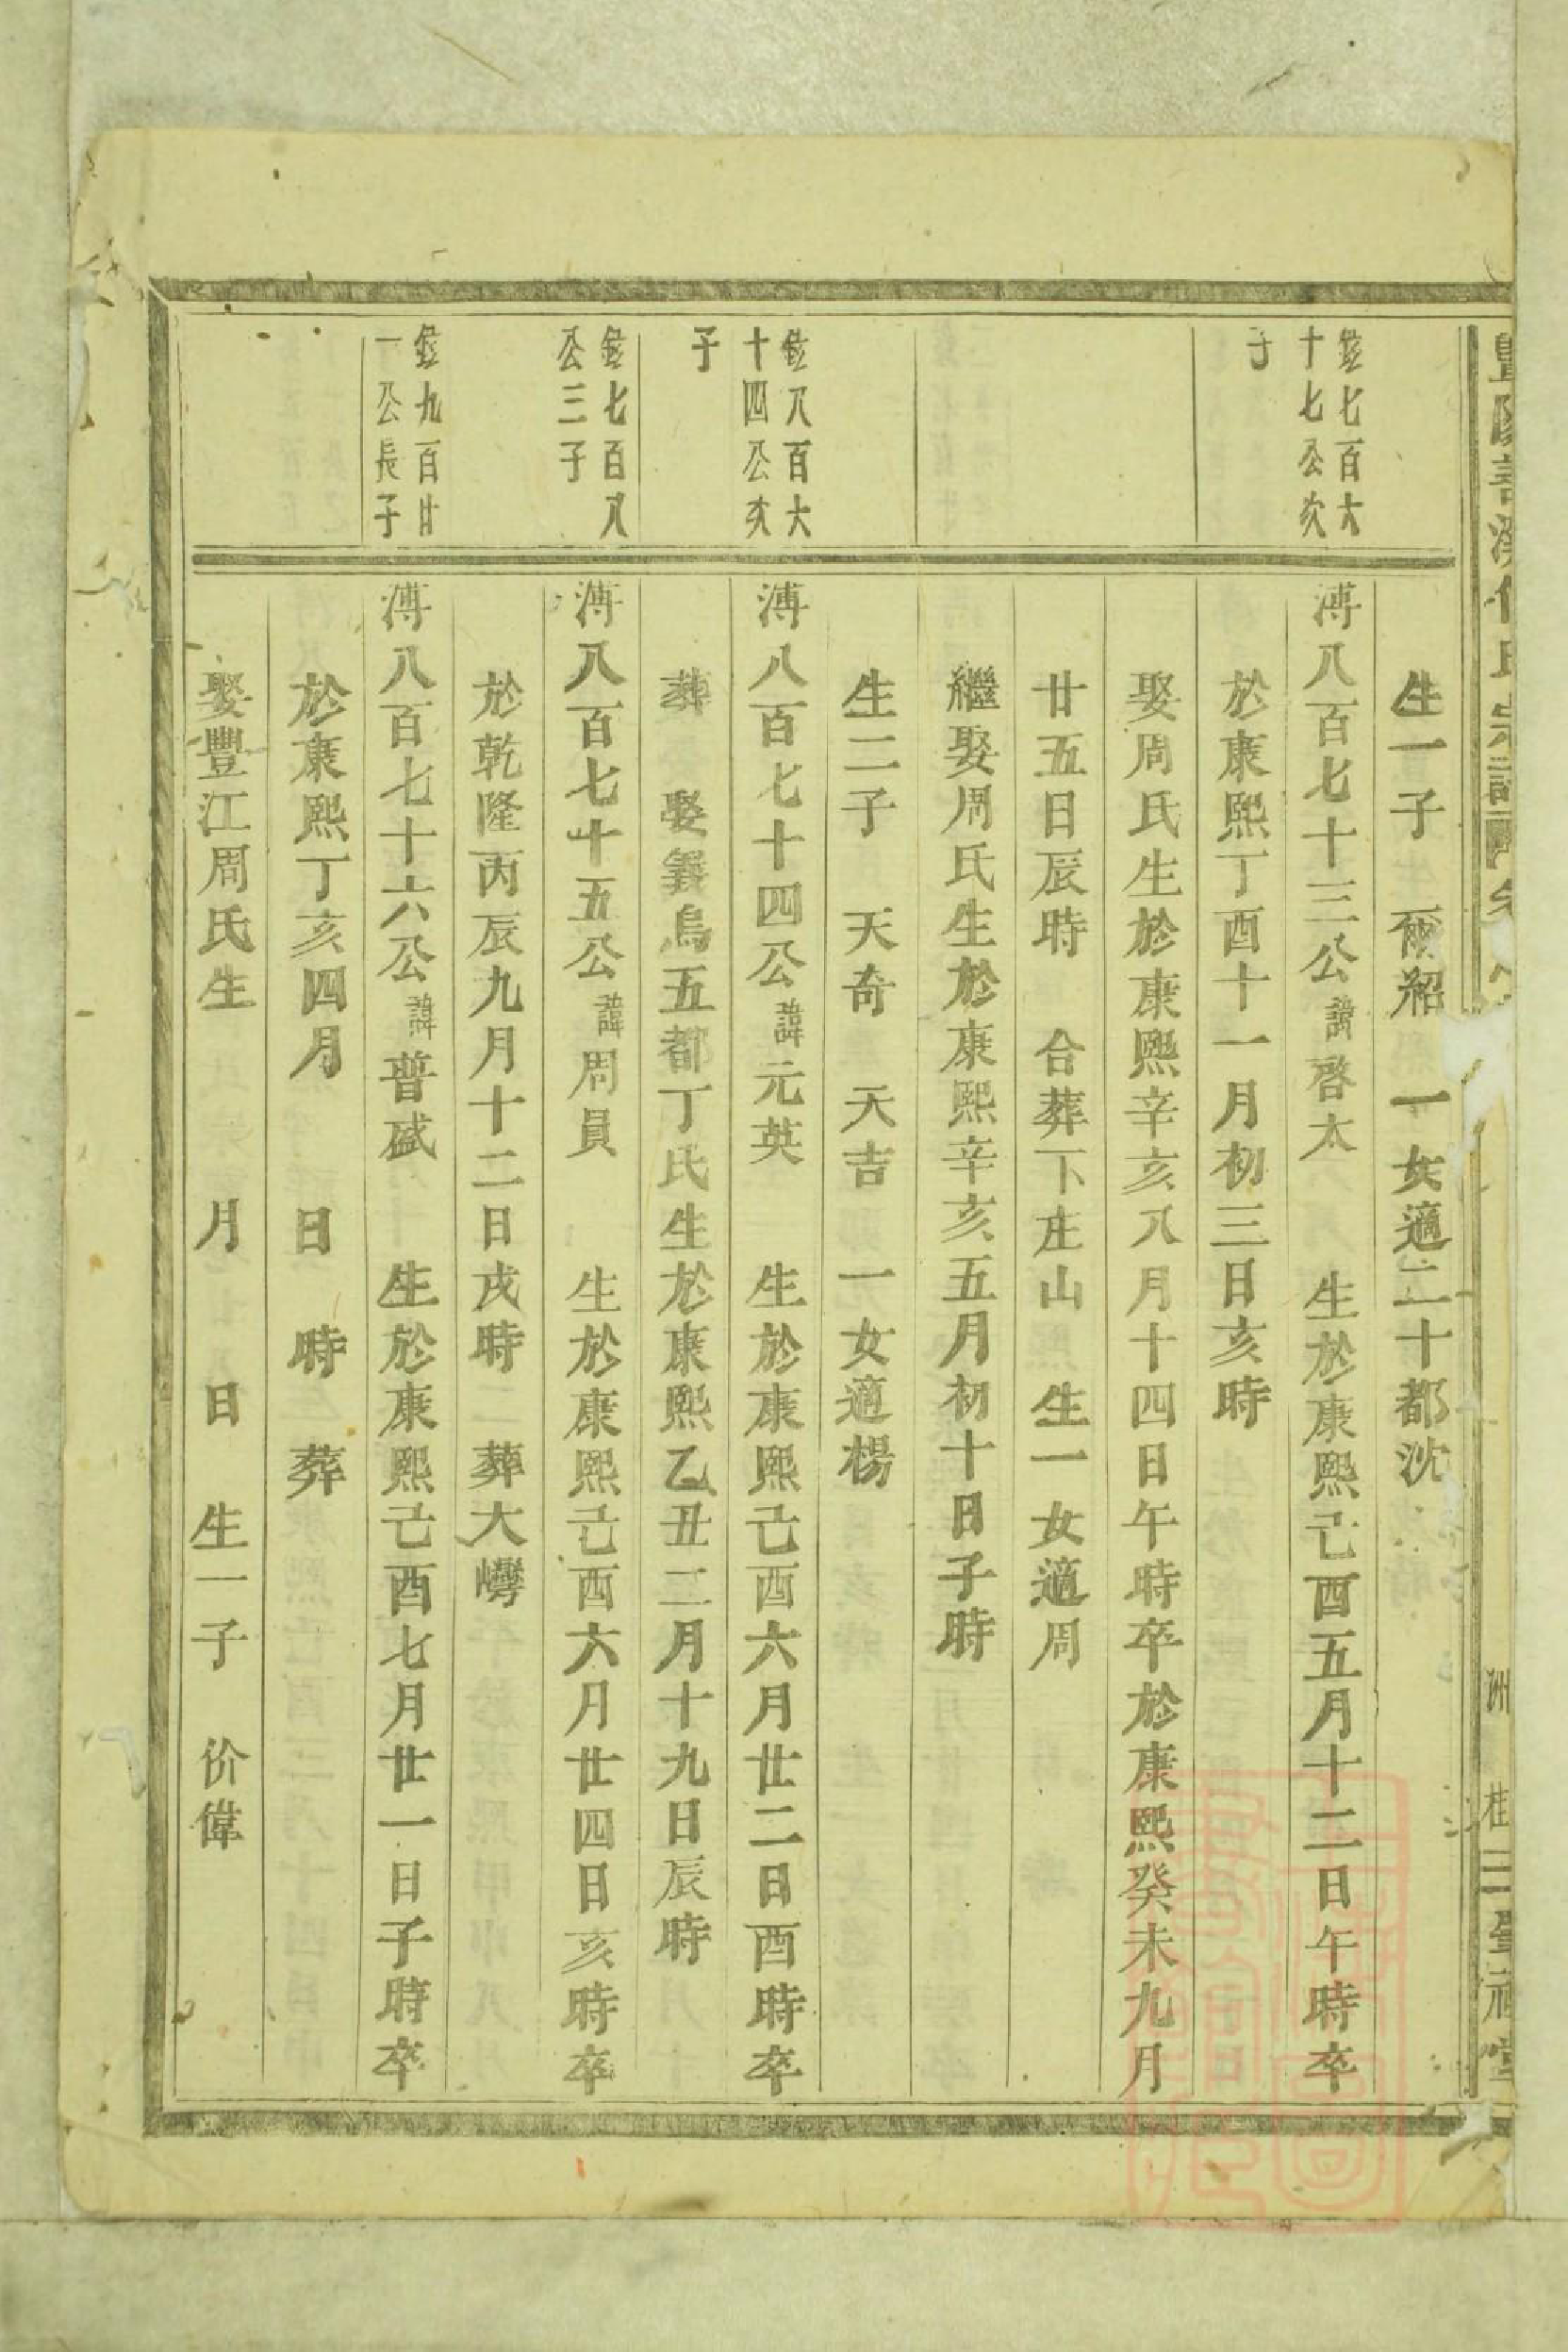 宗譜
洲 桂
生一子 爾紹 一女適二十都沈
鉉七百六
十七公次
子
溥八百七十三公諱啓太 生於康熙己酉五月十二日午時卒
於康熙丁酉十一月初三日亥時
娶周氏生於康熙辛亥八月十四日午時卒於康熙癸未九月
廿五日辰時 合葬下庄山 生一女適周
繼娶周氏生於康熙辛亥五月初十日子時
生二子 天奇 天吉 一女適楊
鉉八百六
十四公次
子
溥八百七十四公諱元英 生於康熙己酉六月廿二日酉時卒
葬 娶義烏五都丁氏生於康熙乙丑二月十九日辰時
鉉七百八
公三子
溥八百七十五公諱周員 生於康熙己酉六月廿四日亥時卒
於乾隆丙辰九月十二日戌時 葬大㘰
鉉九百廿
一公長子
溥八百七十六公諱普盛 生於康熙己酉七月廿一日子時卒
於康熙丁亥四月 日 時 葬
娶豐江周氏生 月 日 生一子 价偉